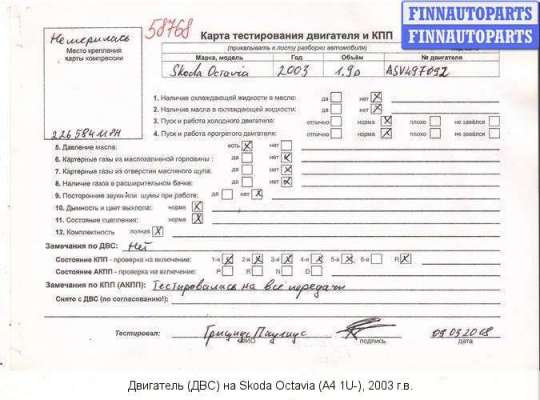 FINNAUTOPARTS
FINNAUTOPARTS
Не мерилась
58768
Место крепления
карты компрессии
Карта тестирования двигателя и КПП
(прикалывать к листу разборки автомобиля)
Марка, модель Год Объём № двигателя
Skoda Octavia 2003 1.9D ASV497092
226584 МРН
1. Наличие охлаждающей жидкости в масле: да нет X
2. Наличие масла в охлаждающей жидкости: да нет X
3. Пуск и работа холодного двигателя: отлично норма X плохо не завёлся
4. Пуск и работа прогретого двигателя: отлично норма X плохо не завёлся
5. Давление масла: есть X нет
6. Картерные газы из маслозаливной горловины: да нет X
7. Картерные газы из отверстия масляного щупа: да нет X
8. Наличие газов в расширительном бачке: да нет X
9. Посторонние звуки или шумы при работе: да нет X
10. Дымность и цвет выхлопа: норма X
11. Состояние сцепления: норма X
12. Комплектность полная X
Замечания по ДВС: Нет
Состояние КПП - проверка на включение: 1-я X 2-я X 3-я X 4-я X 5-я X 6-я R X
Состояние АКПП - проверка на включение: P R N D
Замечания по КПП (АКПП): Тестировалась на все передачи
Снято с ДВС (по согласованию!):
Тестировал:
ФИО подпись дата
09.03.2008
Двигатель (ДВС) на Skoda Octavia (A4 1U-), 2003 г.в.